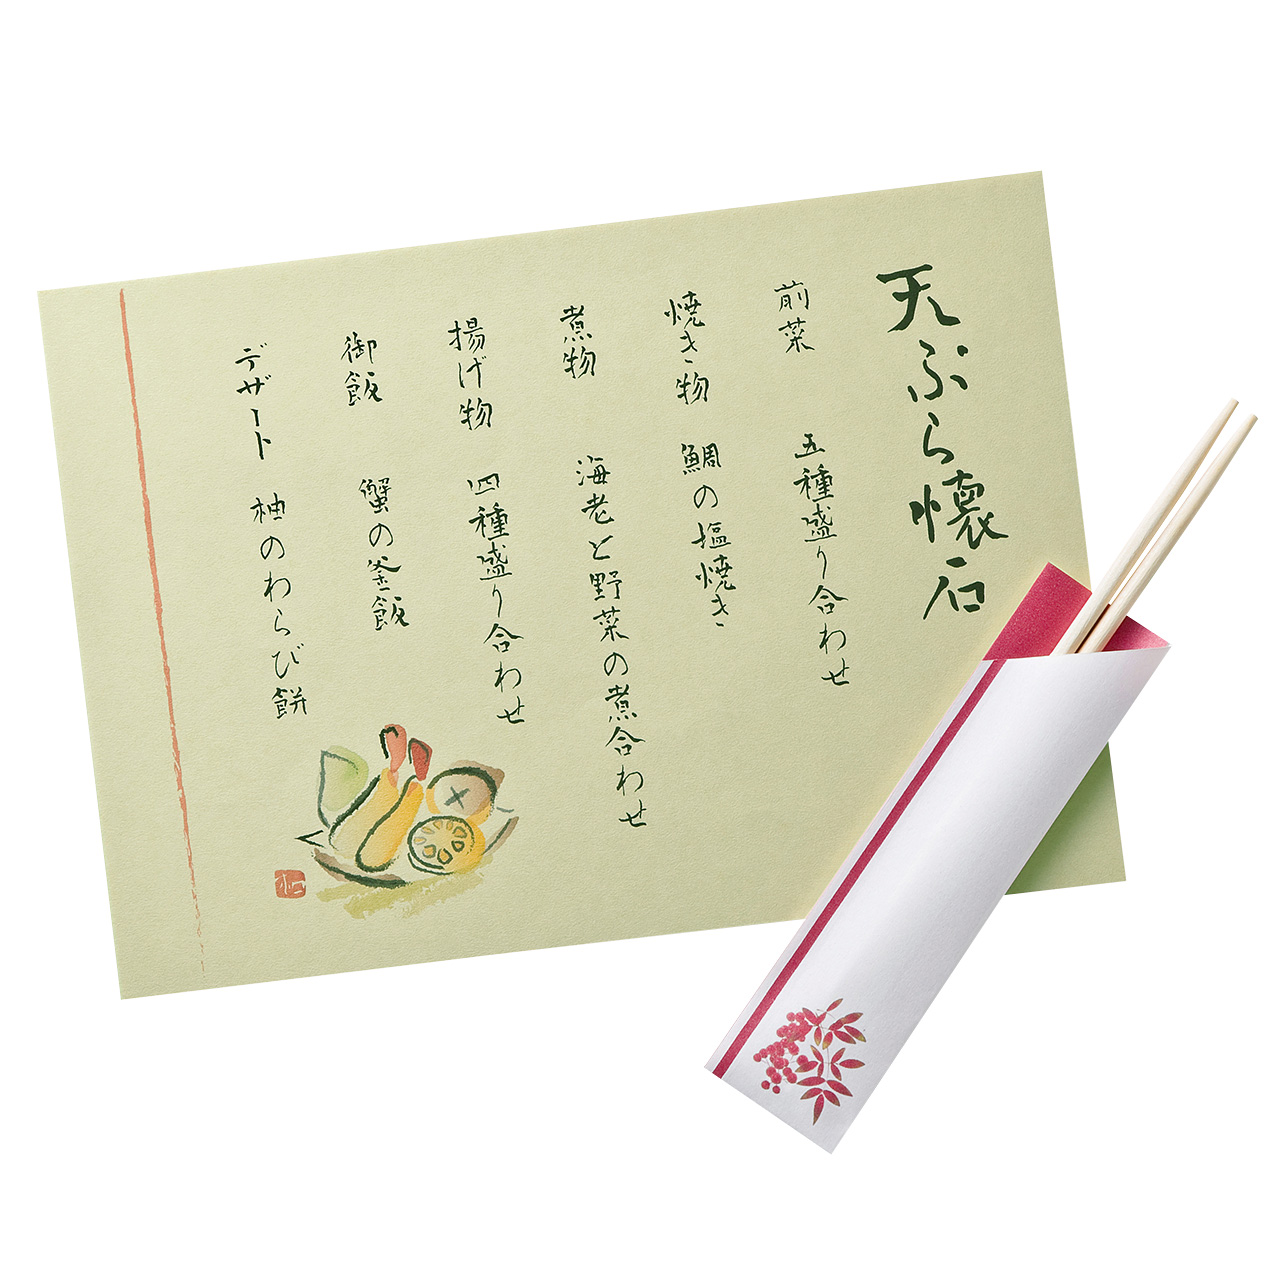 天ぷら懐石
前菜 五種盛り合わせ
焼き物 鯛の塩焼き
煮物 海老と野菜の煮合わせ
揚げ物 四種盛り合わせ
御飯 蟹の釜飯
デザート 柚のわらび餅